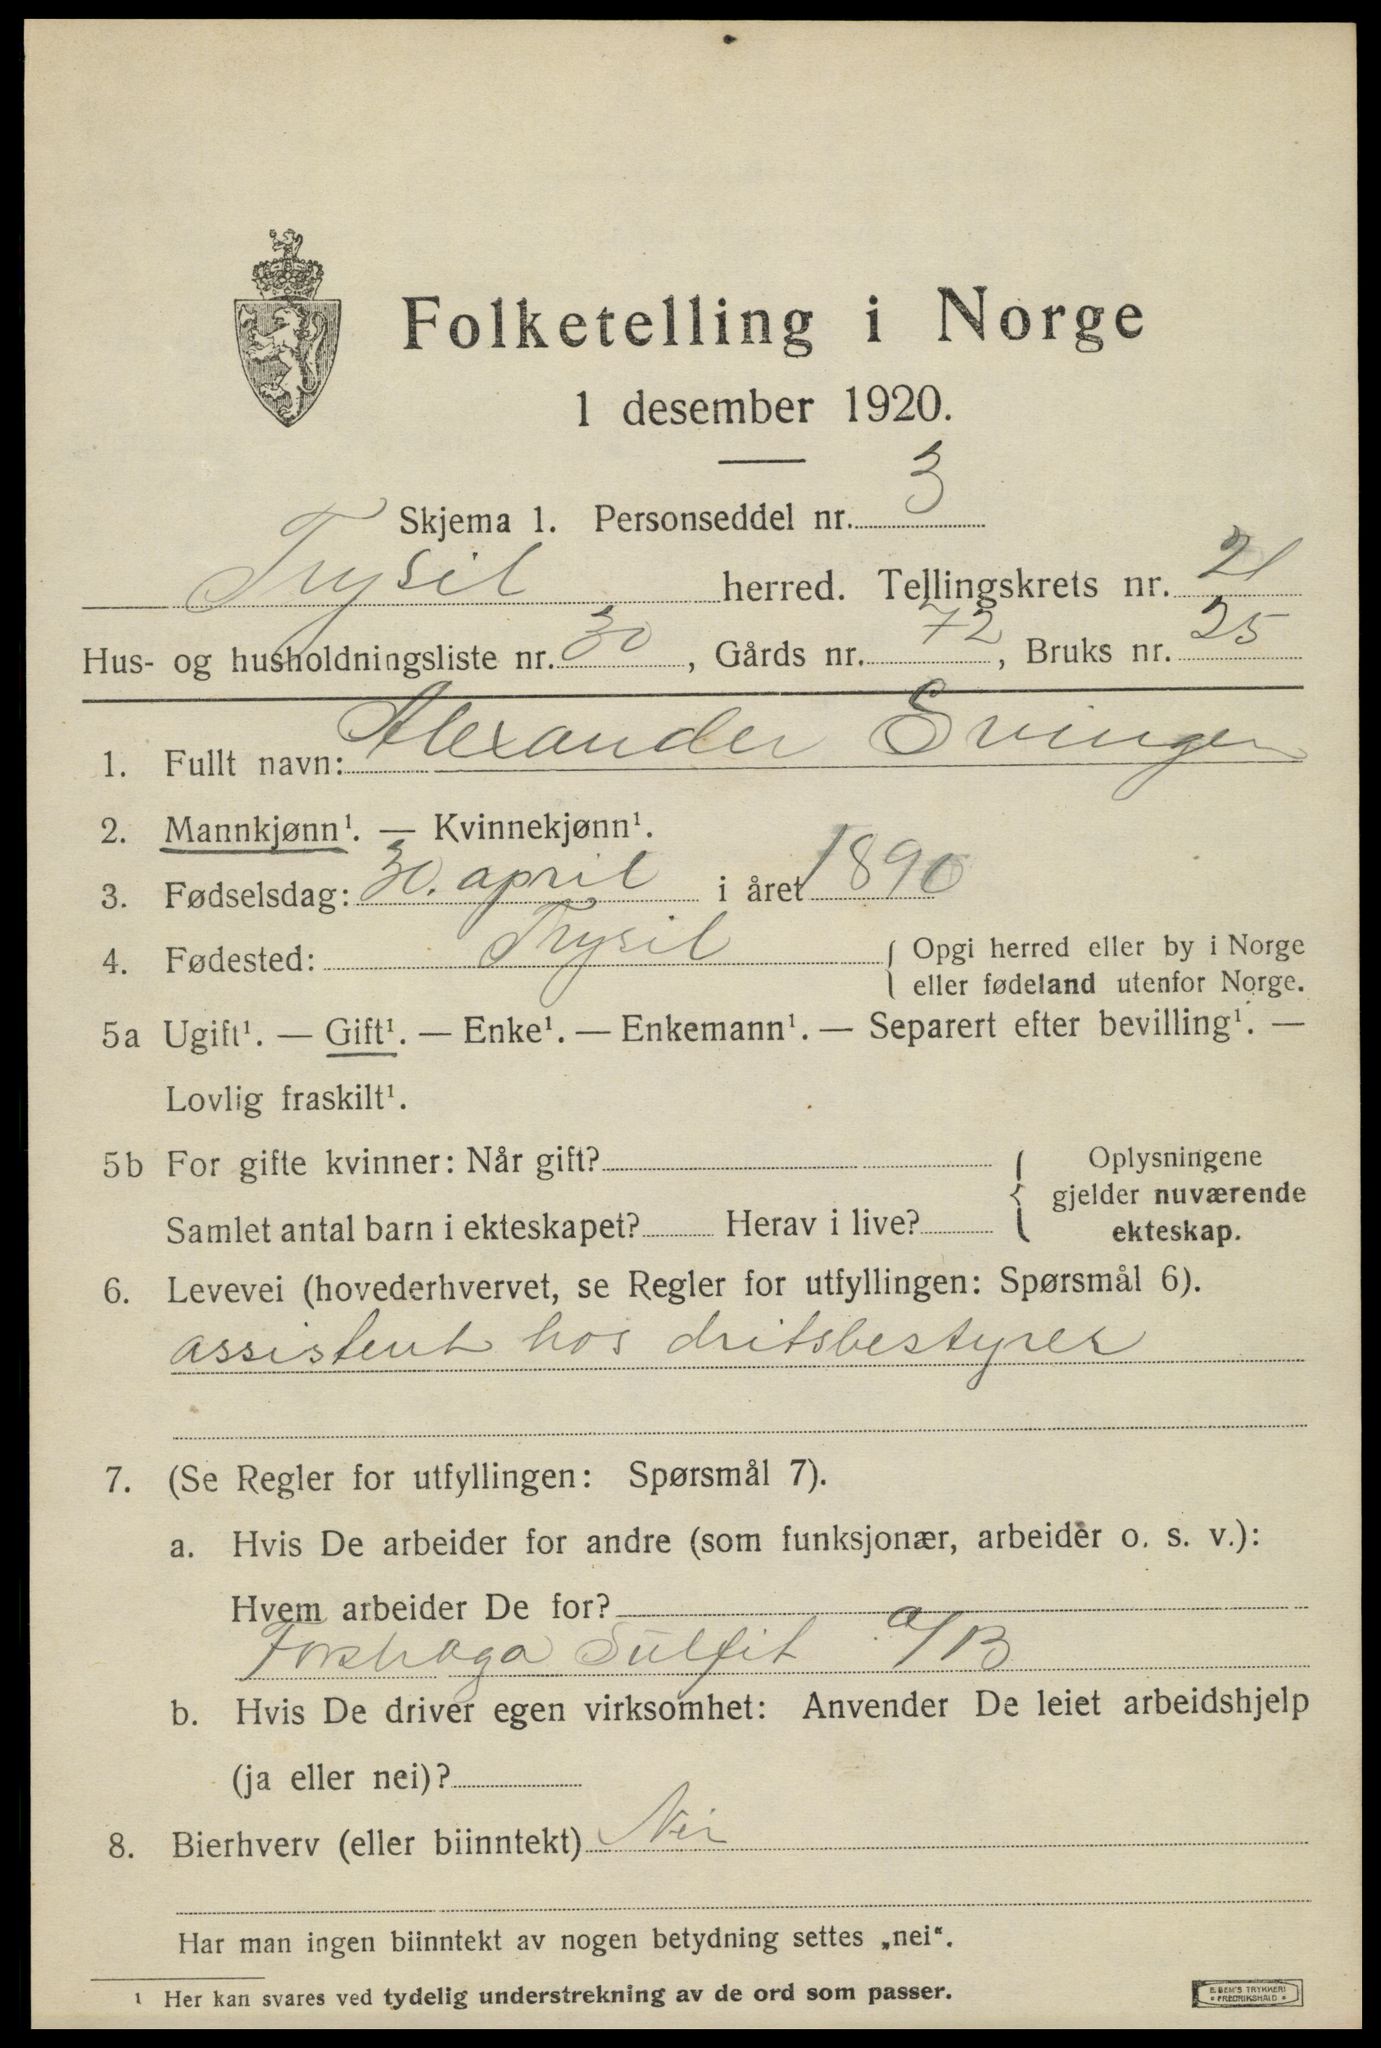 Folketelling i Norge
1 desember 1920.
Skjema 1. Personseddel nr. 3
Trysil herred. Tellingskrets nr. 21
Hus- og husholdningsliste nr. 30, Gårds nr. 72, Bruks nr. 25
1. Fullt navn: Alexander Svingen
2. Mannkjønn¹. — Kvinnekjønn¹.
3. Fødselsdag: 30. april i året 1890
4. Fødested: Trysil { Opgi herred eller by i Norge
eller fødeland utenfor Norge.
5a Ugift¹. — Gift¹. — Enke¹. — Enkemann¹. — Separert efter bevilling¹. —
Lovlig fraskilt¹.
5b For gifte kvinner: Når gift? { Oplysningene
gjelder nuværende
Samlet antal barn i ekteskapet? Herav i live? ekteskap.
6. Levevei (hovederhvervet, se Regler for utfyllingen: Spørsmål 6).
assistent hos dritsbestyrer
7. (Se Regler for utfyllingen: Spørsmål 7).
a. Hvis De arbeider for andre (som funksjonær, arbeider o. s. v.):
Hvem arbeider De for?
Forshaga Sulfit a/B
b. Hvis De driver egen virksomhet: Anvender De leiet arbeidshjelp
(ja eller nei)?
8. Bierhverv (eller biinntekt) Nei
Har man ingen biinntekt av nogen betydning settes „nei“.
¹ Her kan svares ved tydelig understrekning av de ord som passer.
E. BEM'S TRYKKERI
* FREDRIKSHALD *